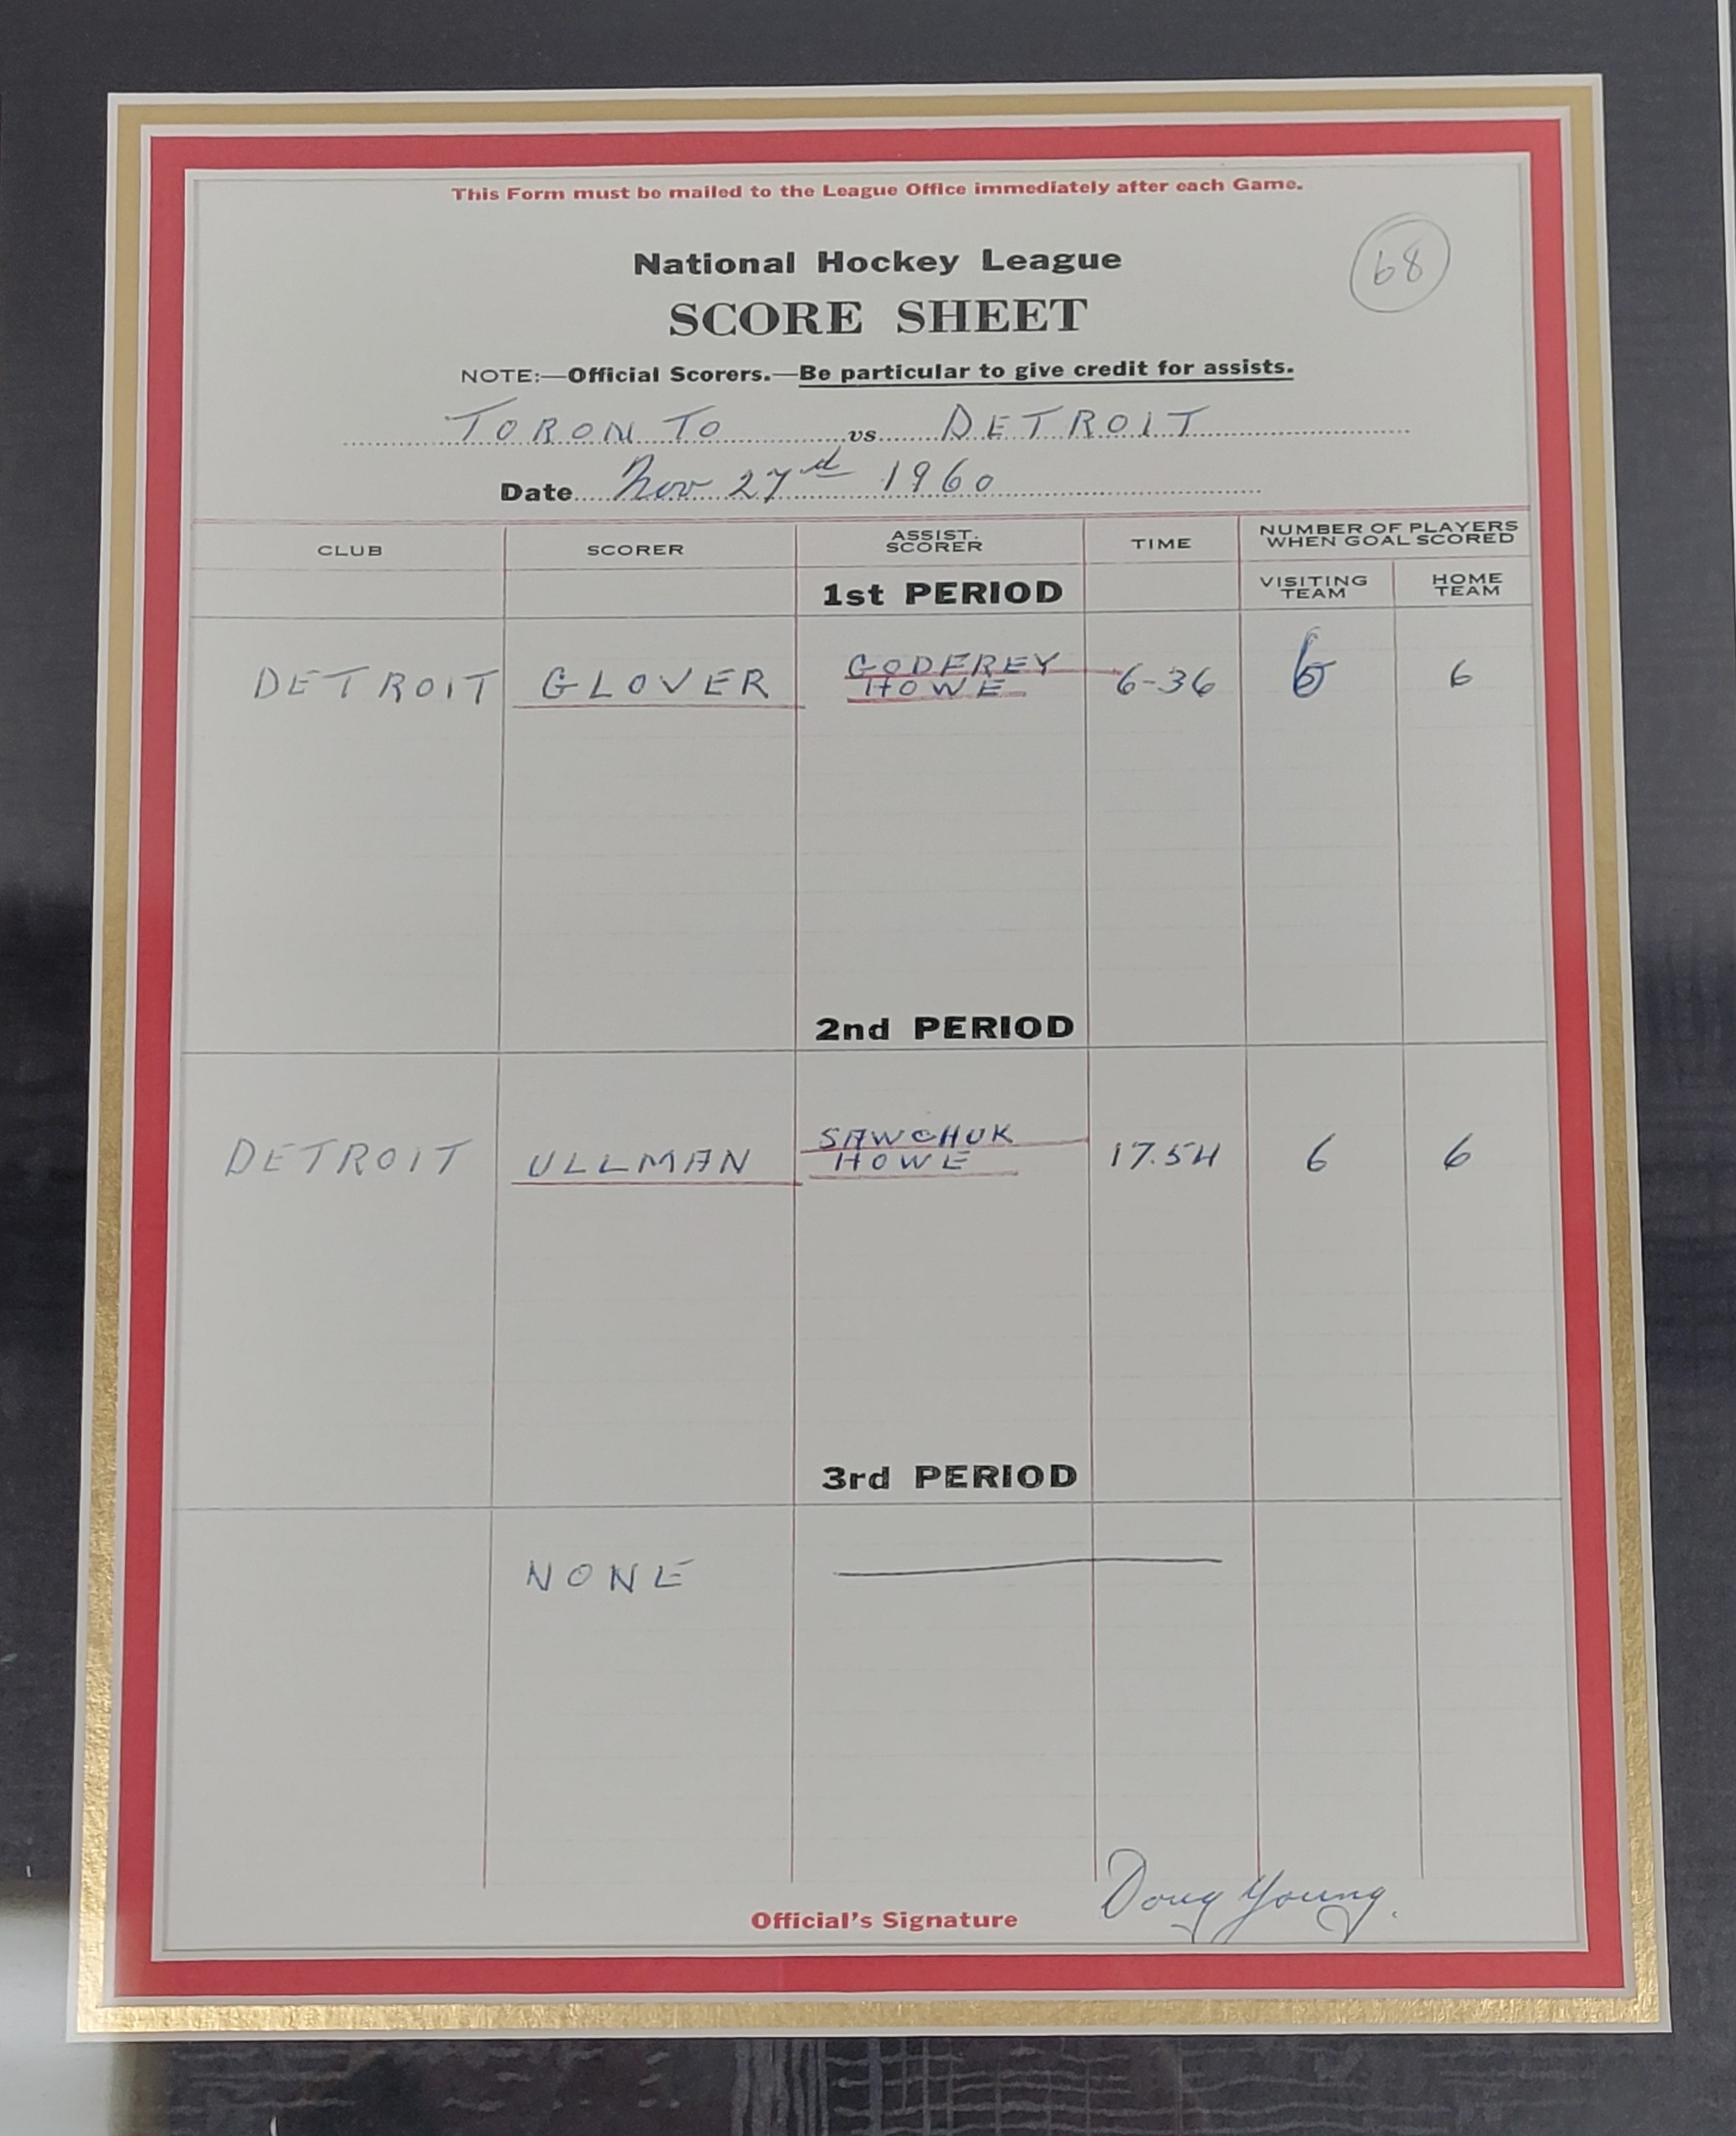 This Form must be mailed to the League Office immediately after each Game.
68
National Hockey League
SCORE SHEET
NOTE:—Official Scorers.—Be particular to give credit for assists.
TORONTO vs DETROIT
Date Nov 27d 1960
CLUB SCORER ASSIST. SCORER TIME NUMBER OF PLAYERS WHEN GOAL SCORED
1st PERIOD VISITING TEAM HOME TEAM
DETROIT GLOVER GODFREY HOWE 6-36 6 6
2nd PERIOD
DETROIT ULLMAN SAWCHUK HOWE 17.54 6 6
3rd PERIOD
NONE
Official's Signature Doug Young.